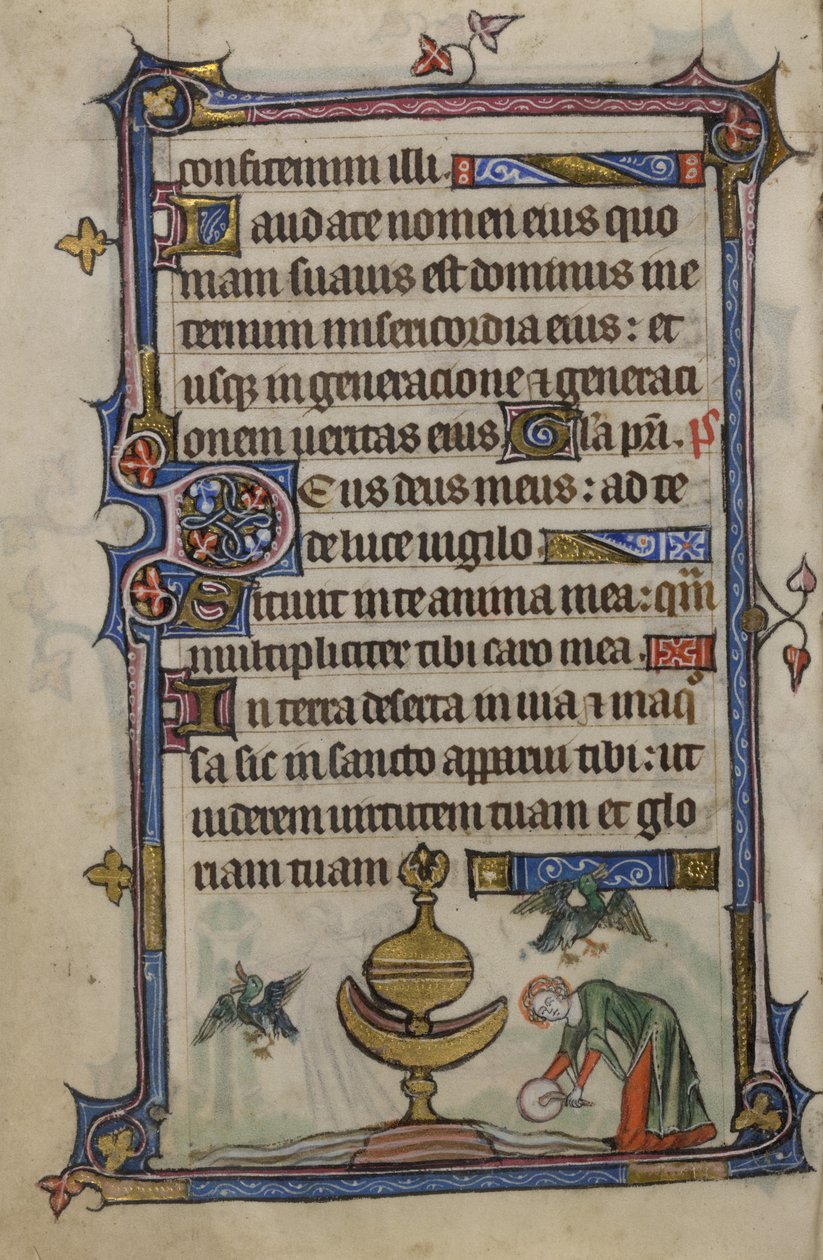 confitemini illi.
Laudate nomen eius quo
niam suauis est dominus in e
ternum misericordia eius: et
usq; in generacione ⁊ generaci
onem ueritas eius Gl̄a pr̄i. ps
Deus deus meus: ad te
de luce uigilo.
Sitiuit in te anima mea: qm̄
multipliciter tibi caro mea.
In terra deserta in uia ⁊ inaqͦ
sa sic in sancto apparui tibi: ut
uiderem uirtutem tuam et glo
riam tuam